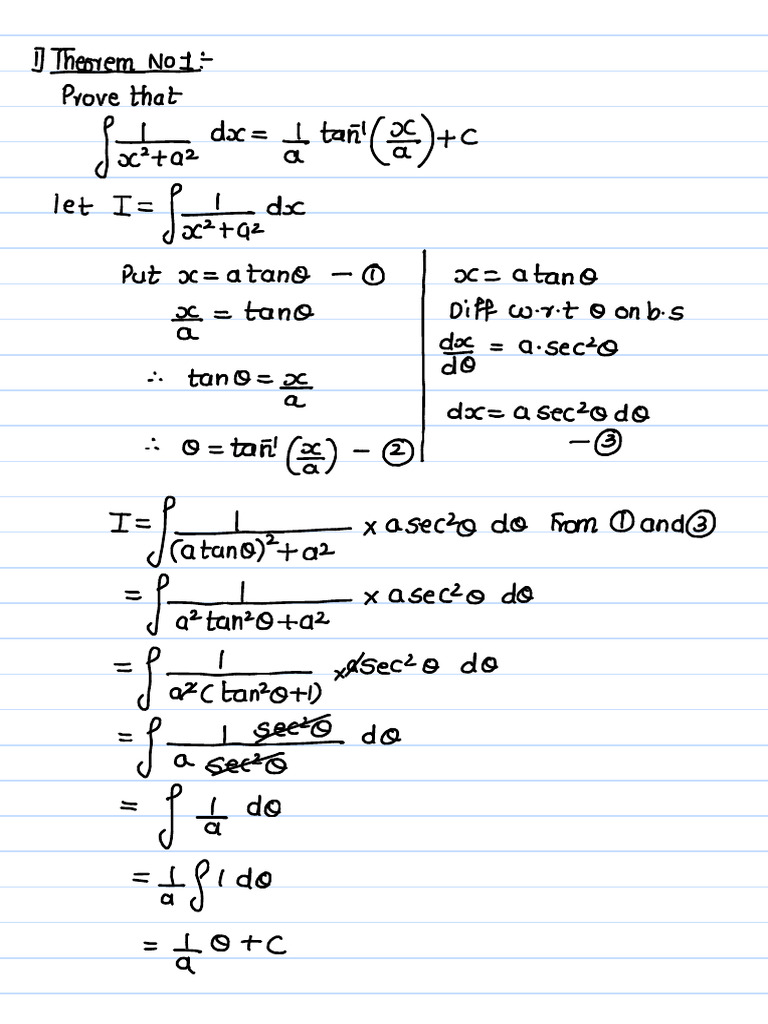 1] Theorem No 1:-
Prove that
∫ 1/(x²+a²) dx = 1/a tan⁻¹(x/a) + C
let I = ∫ 1/(x²+a²) dx
Put x = a tanθ — ①
x/a = tanθ
∴ tanθ = x/a
∴ θ = tan⁻¹(x/a) — ②
x = a tanθ
Diff w.r.t θ on b.s
dx/dθ = a·sec²θ
dx = a sec²θ dθ
— ③
I = ∫ 1/((a tanθ)²+a²) × a sec²θ dθ From ① and ③
= ∫ 1/(a² tan²θ+a²) × a sec²θ dθ
= ∫ 1/(a²(tan²θ+1)) × a sec²θ dθ
= ∫ 1 sec²θ/(a sec²θ) dθ
= ∫ 1/a dθ
= 1/a ∫ 1 dθ
= 1/a θ + C